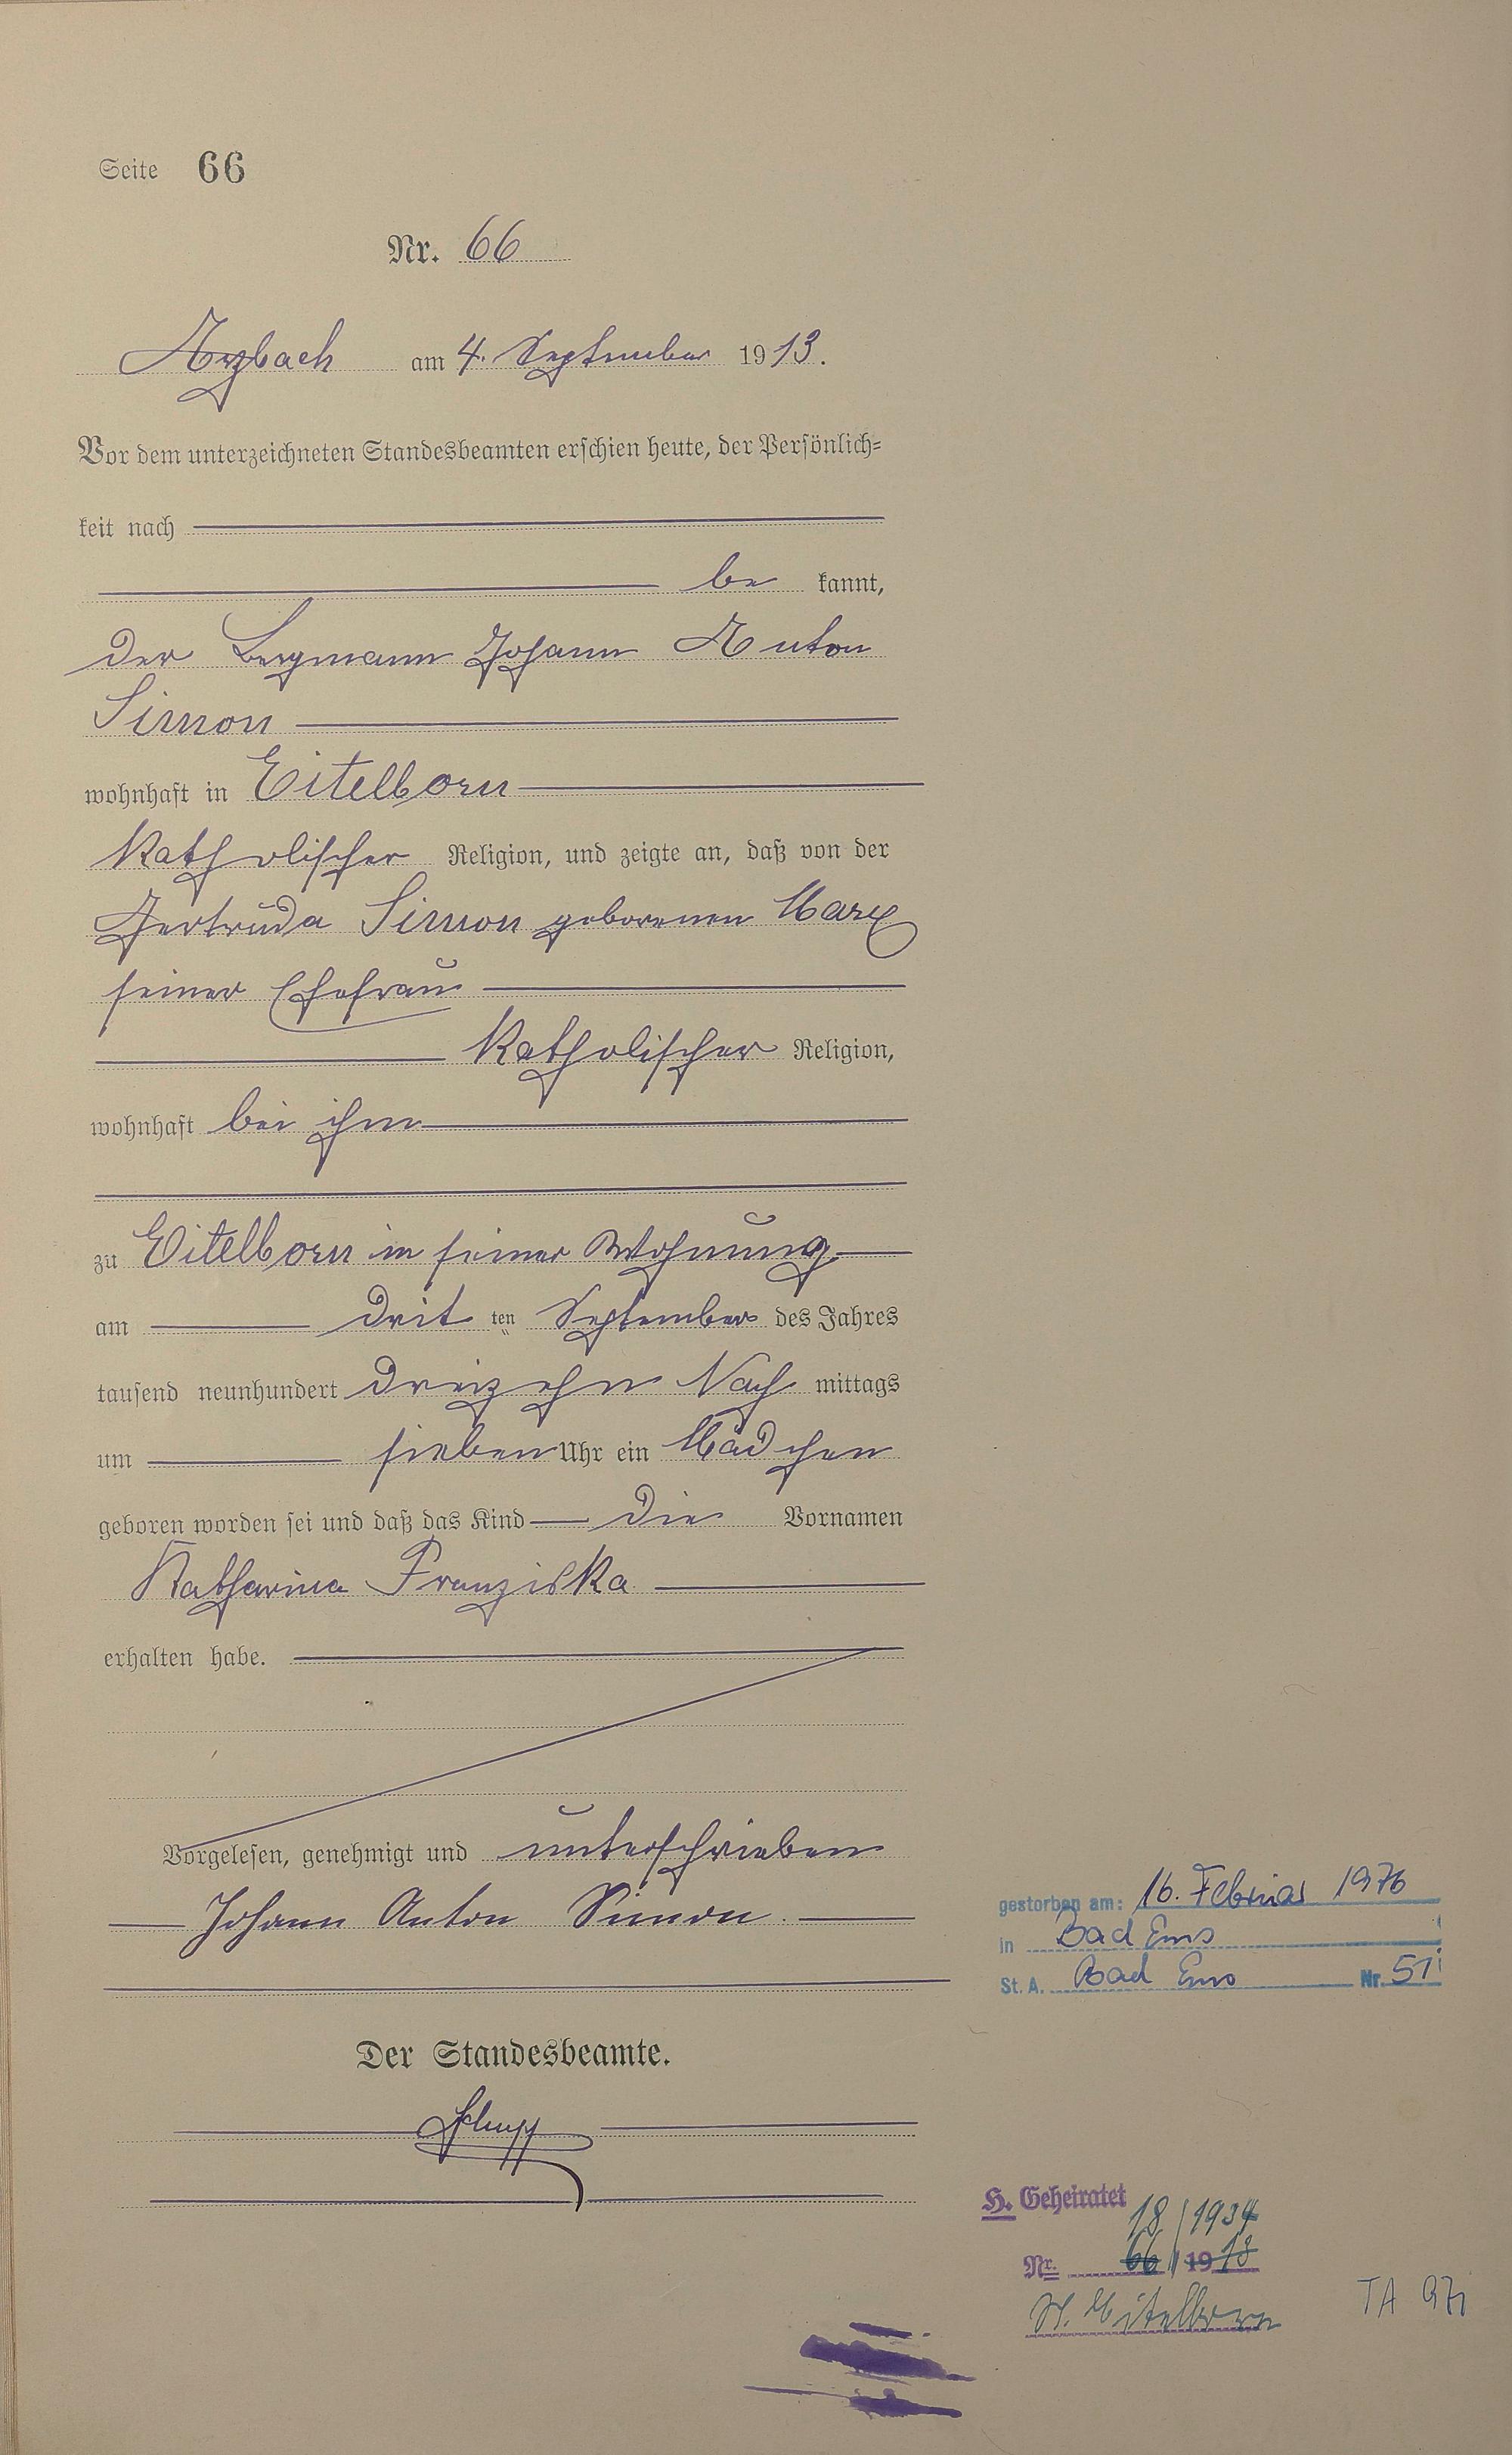 Seite 66
Nr. 66
Arzbach am 4. September 1913.
Vor dem unterzeichneten Standesbeamten erschien heute, der Persönlich=
keit nach
be kannt,
der Bergmann Johann Anton
Simon
wohnhaft in Eitelborn
katholischer Religion, und zeigte an, daß von der
Gertruda Simon geborenen Marx
seiner Ehefrau
katholischer Religion,
wohnhaft bei ihm
zu Eitelborn in seiner Wohnung
am dritten September des Jahres
tausend neunhundert dreizehn Nachmittags
um sieben Uhr ein Mädchen
geboren worden sei und daß das Kind die Vornamen
Katharina Franziska
erhalten habe.
Vorgelesen, genehmigt und unterschrieben
Johann Anton Simon.
gestorben am: 16. Februar 1976
in Bad Ems
St. A. Bad Ems Nr. 51
Der Standesbeamte.
H. Geheiratet
18/1934
Nr. 66/1918
St. Eitelborn
TA